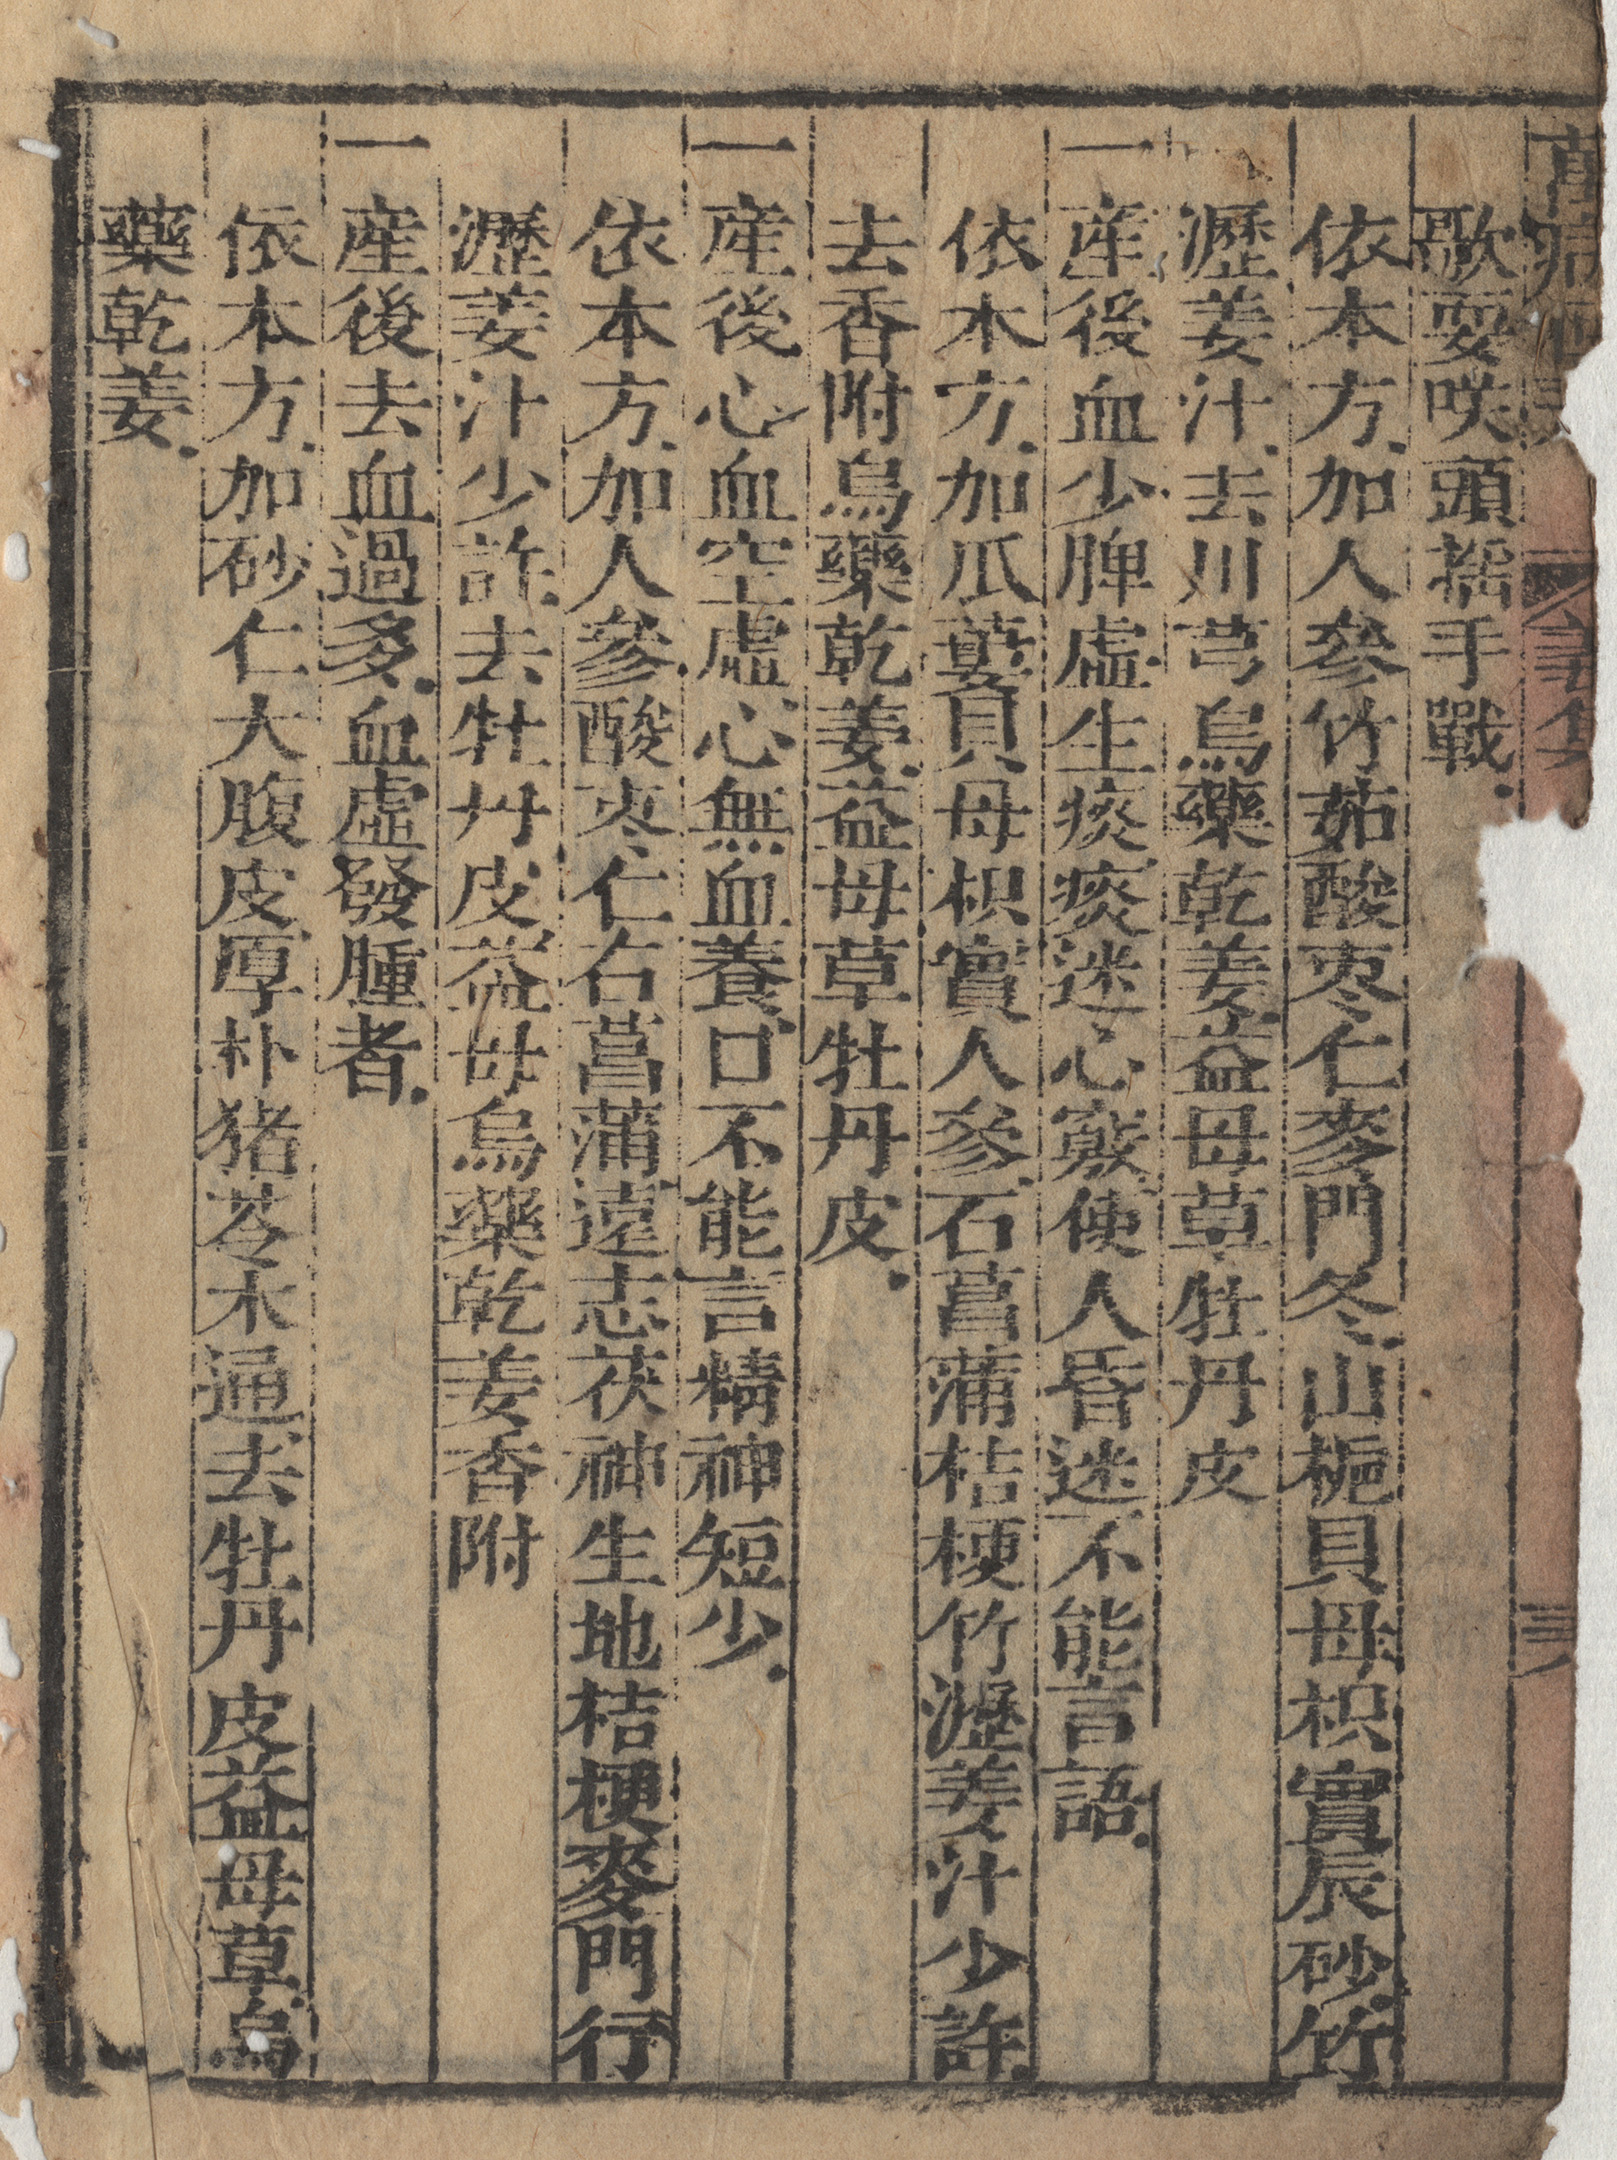 歌耍咲頭揺手戰
依本方加人參竹茹酸枣仁麥門冬山梔貝母枳實辰砂竹
瀝姜汁去川芎烏藥乾姜益母草牡丹皮
一産後血少脾虛生痰痰迷心竅使人昏迷不能言語
依本方加瓜蔞貝母枳實人參石菖蒲桔梗竹瀝姜汁少許
去香附烏藥乾姜益母草牡丹皮
一産後心血空虛心無血養口不能言精神短少
依本方加人參酸枣仁石菖蒲遠志茯神生地桔梗麥門行
瀝姜汁少許去牡丹皮益母烏藥乾姜香附
一産後去血過多血虛發腫者
依本方加砂仁大腹皮厚朴猪苓木通去牡丹皮益母草烏
藥乾姜